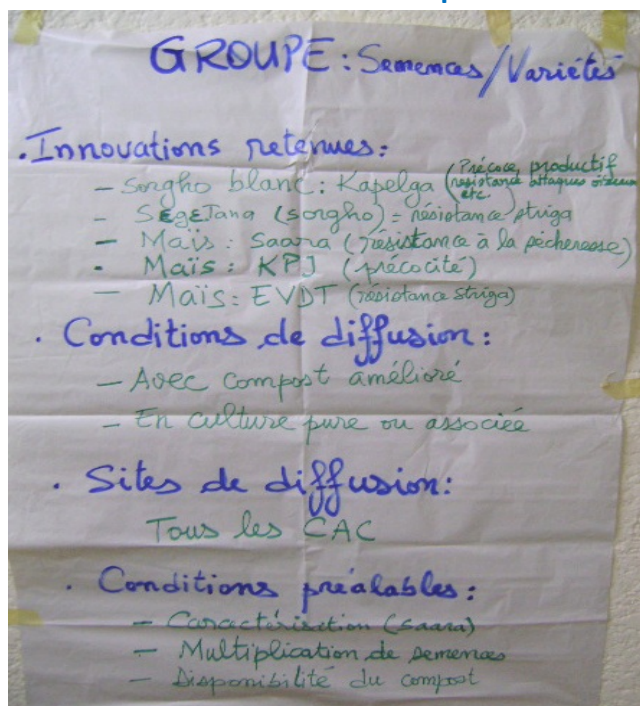 GROUPE : Semences/Variétés
. Innovations retenues :
- Sorgho blanc : Kapelga (Précoce, productif
résistance attaques oiseaux
etc. )
- SEgETana (sorgho) = résistance/striga
- Maïs : Saara (résistance à la pécheresse)
- Maïs : KPJ (précocité)
- Maïs : EVDT (résistance striga)
. Conditions de diffusion :
- Avec compost amélioré
- En culture pure ou associée
. Sites de diffusion :
Tous les CAC
. Conditions préalables :
- Caractérisation (saara)
- Multiplication de semences
- Disponibilité du compost